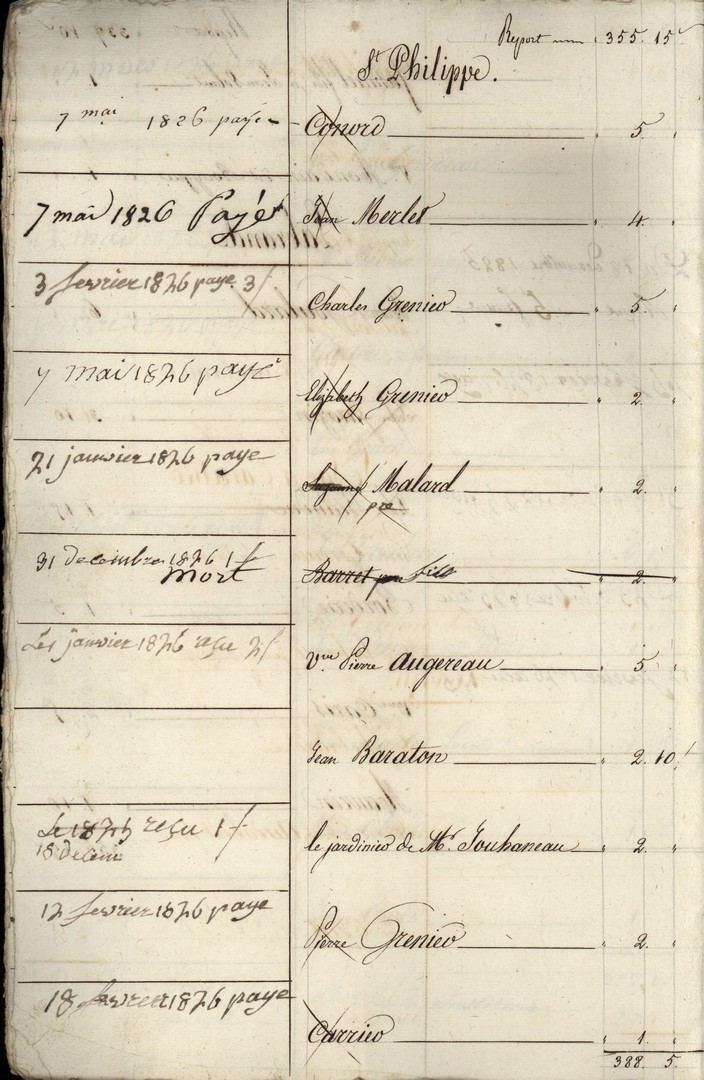 Report 355. 15
St. Philippe.
7 mai 1826 payé Conord " 5 "
7 mai 1826 Payé Jean Merlet " 4 "
3 fevrier 1826 paye 3f Charles Grenier " 5 "
7 mai 1826 payé Elizabeth Grenier " 2 "
21 janvier 1826 paye Malard " 2 "
pre
31 decembre 1826 1f Barret fils " 2 "
Mort
janvier 1826 reçu 2f Vve Pierre Augereau " 5 "
Jean Baraton " 2. 10
reçu 1f le jardinier de Mr. Jouhaneau " 2 "
18 decem
12 fevrier 1826 paye Pierre Grenier " 2 "
18 fevrier 1826 paye Carrier " 1 "
388. 5.